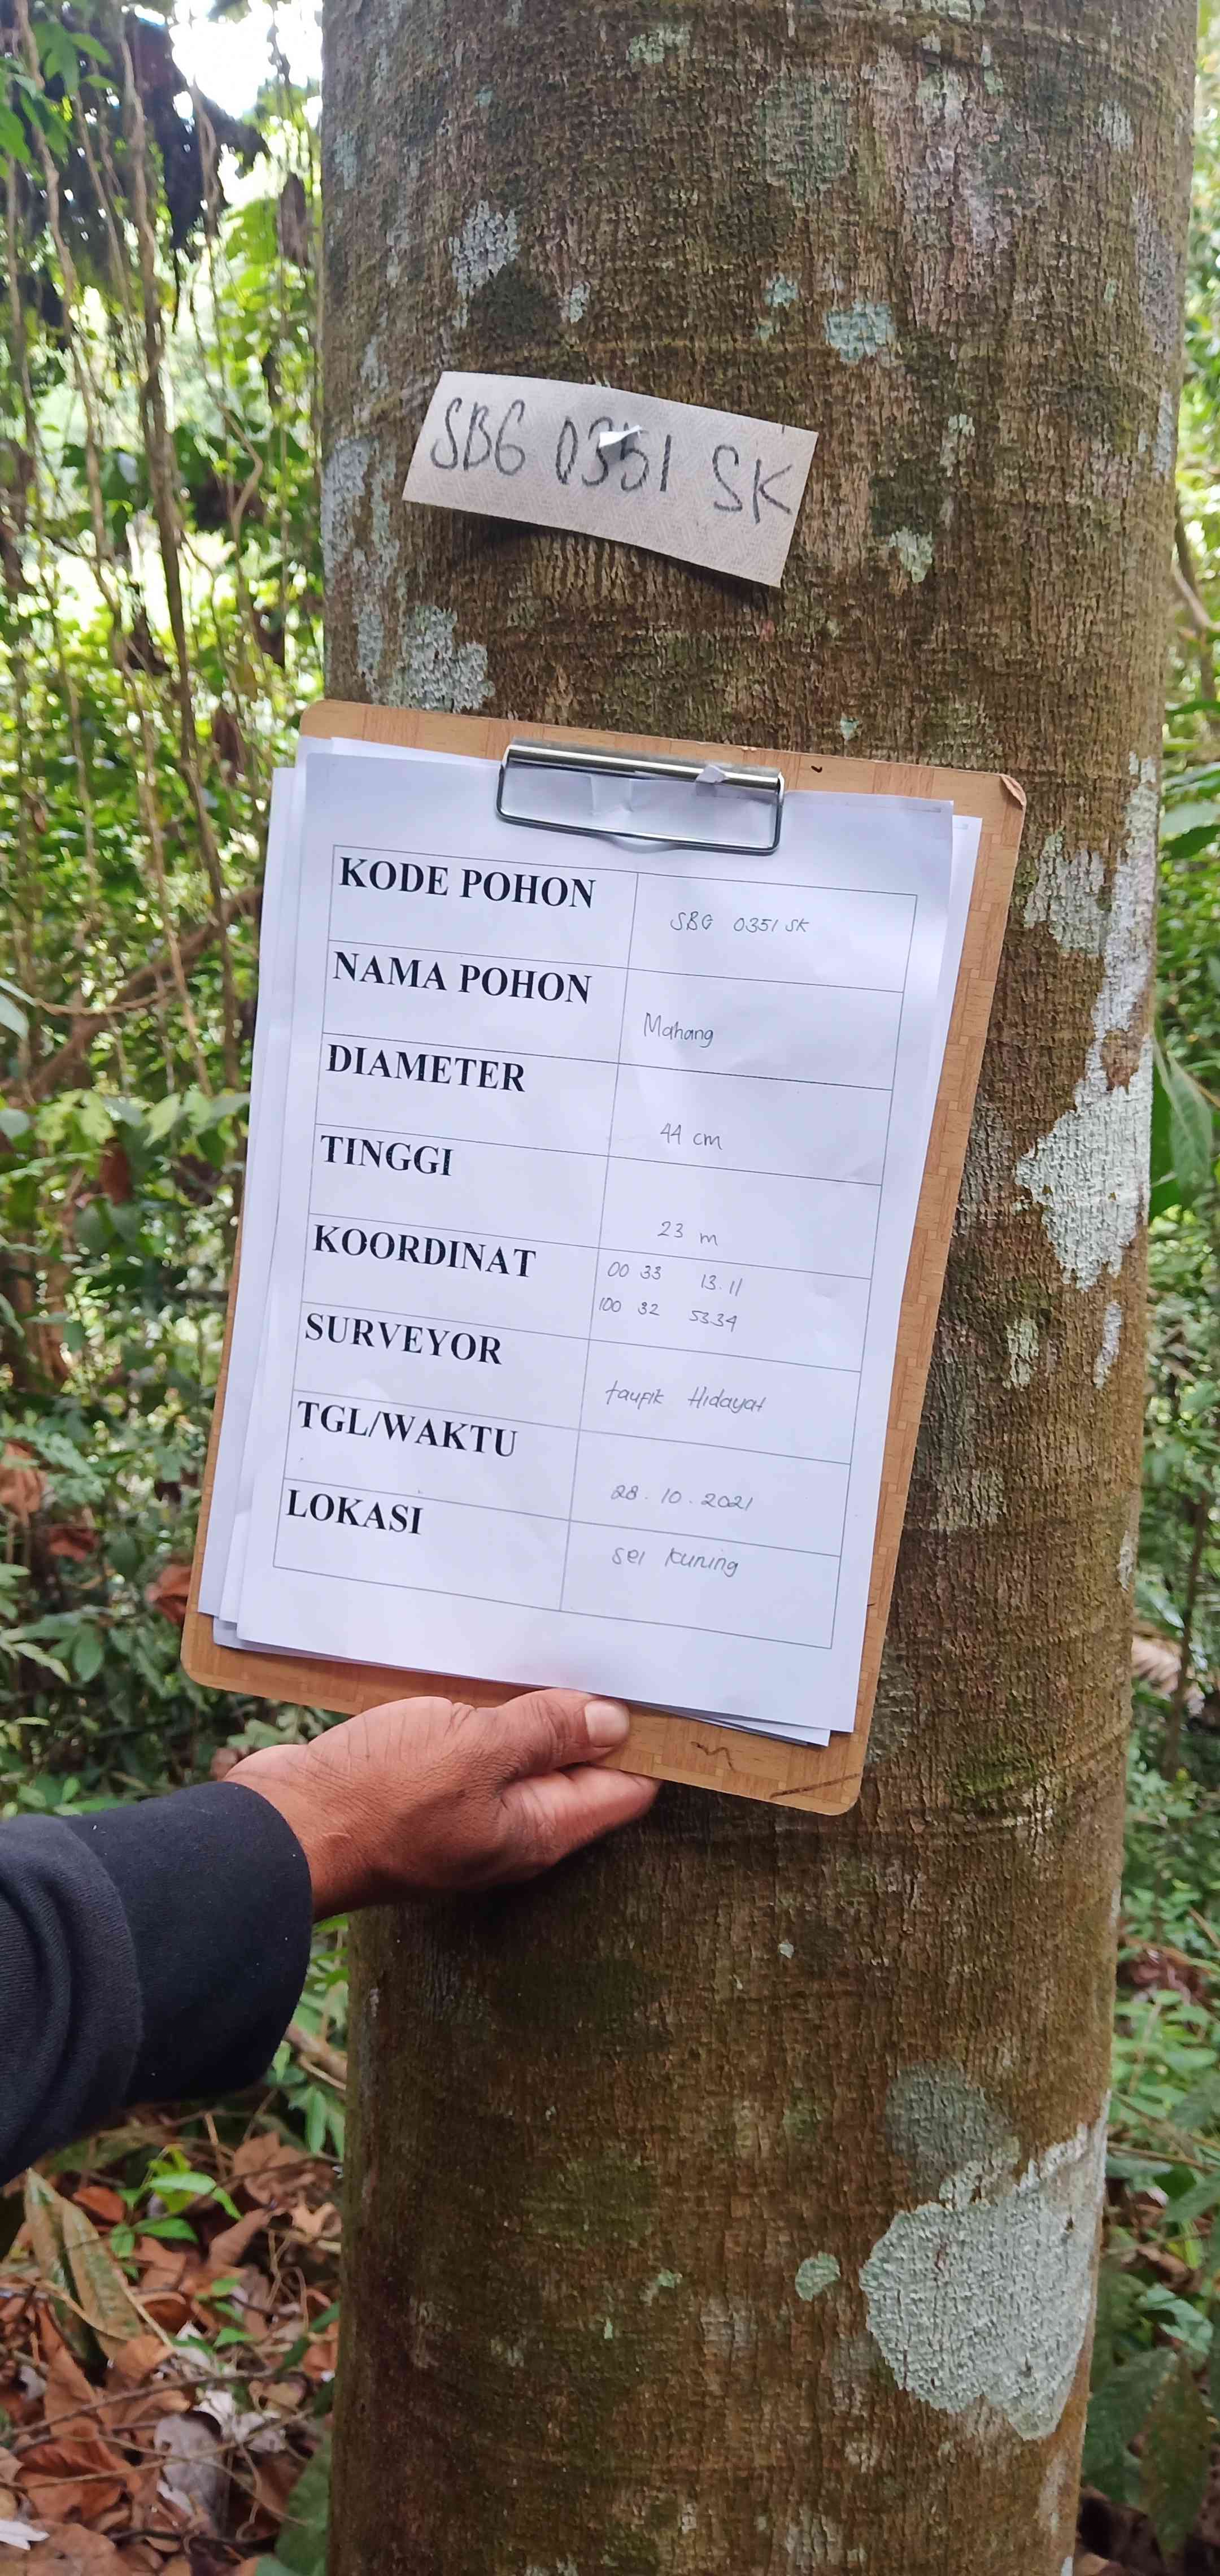 SBG 0351 SK
KODE POHON SBG 0351 SK
NAMA POHON Mahang
DIAMETER 44 cm
TINGGI 23 m
KOORDINAT 00 33 13.11
100 32 53.34
SURVEYOR taufik Hidayat
TGL/WAKTU 28.10.2021
LOKASI sei kuning